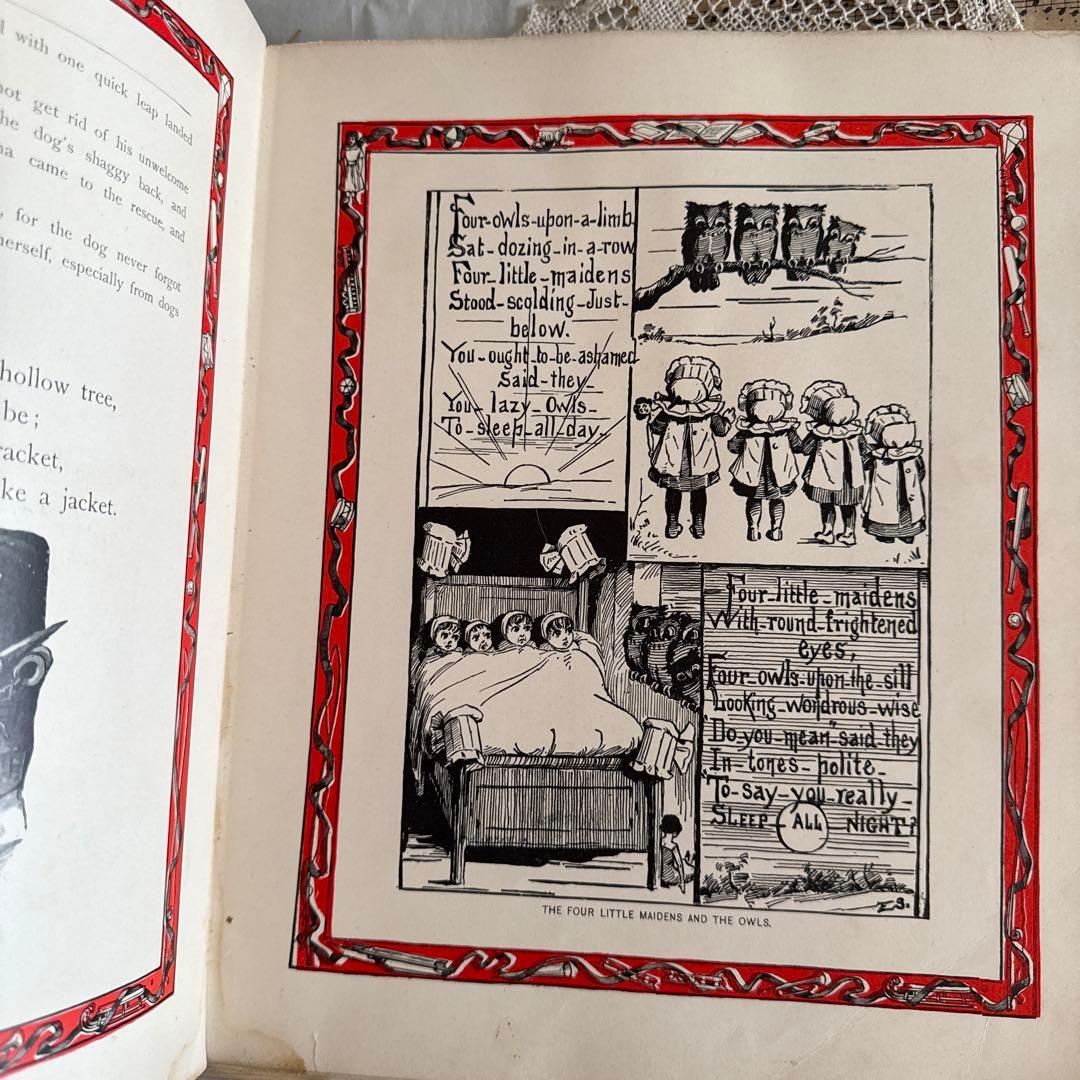 with one quick leap landed
not get rid of his unwelcome
the dog's shaggy back, and
came to the rescue, and
for the dog never forgot
herself, especially from dogs
hollow tree,
be;
racket,
ke a jacket.
Four-owls-upon-a-limb
Sat-dozing-in-a-row
Four-little-maidens
Stood-scolding-Just-
below.
You-ought-to-be-ashamed
Said-they-
You-lazy-Owls-
To-sleep-all-day-
Four-little-maidens
With-round-frightened
eyes,
Four-owls-upon-the-sill
Looking-wondrous-wise
"Do-you-mean" said-they
In-tones-polite-
"To-say-you-really-
SLEEP-ALL-NIGHT?
E.S.
THE FOUR LITTLE MAIDENS AND THE OWLS.